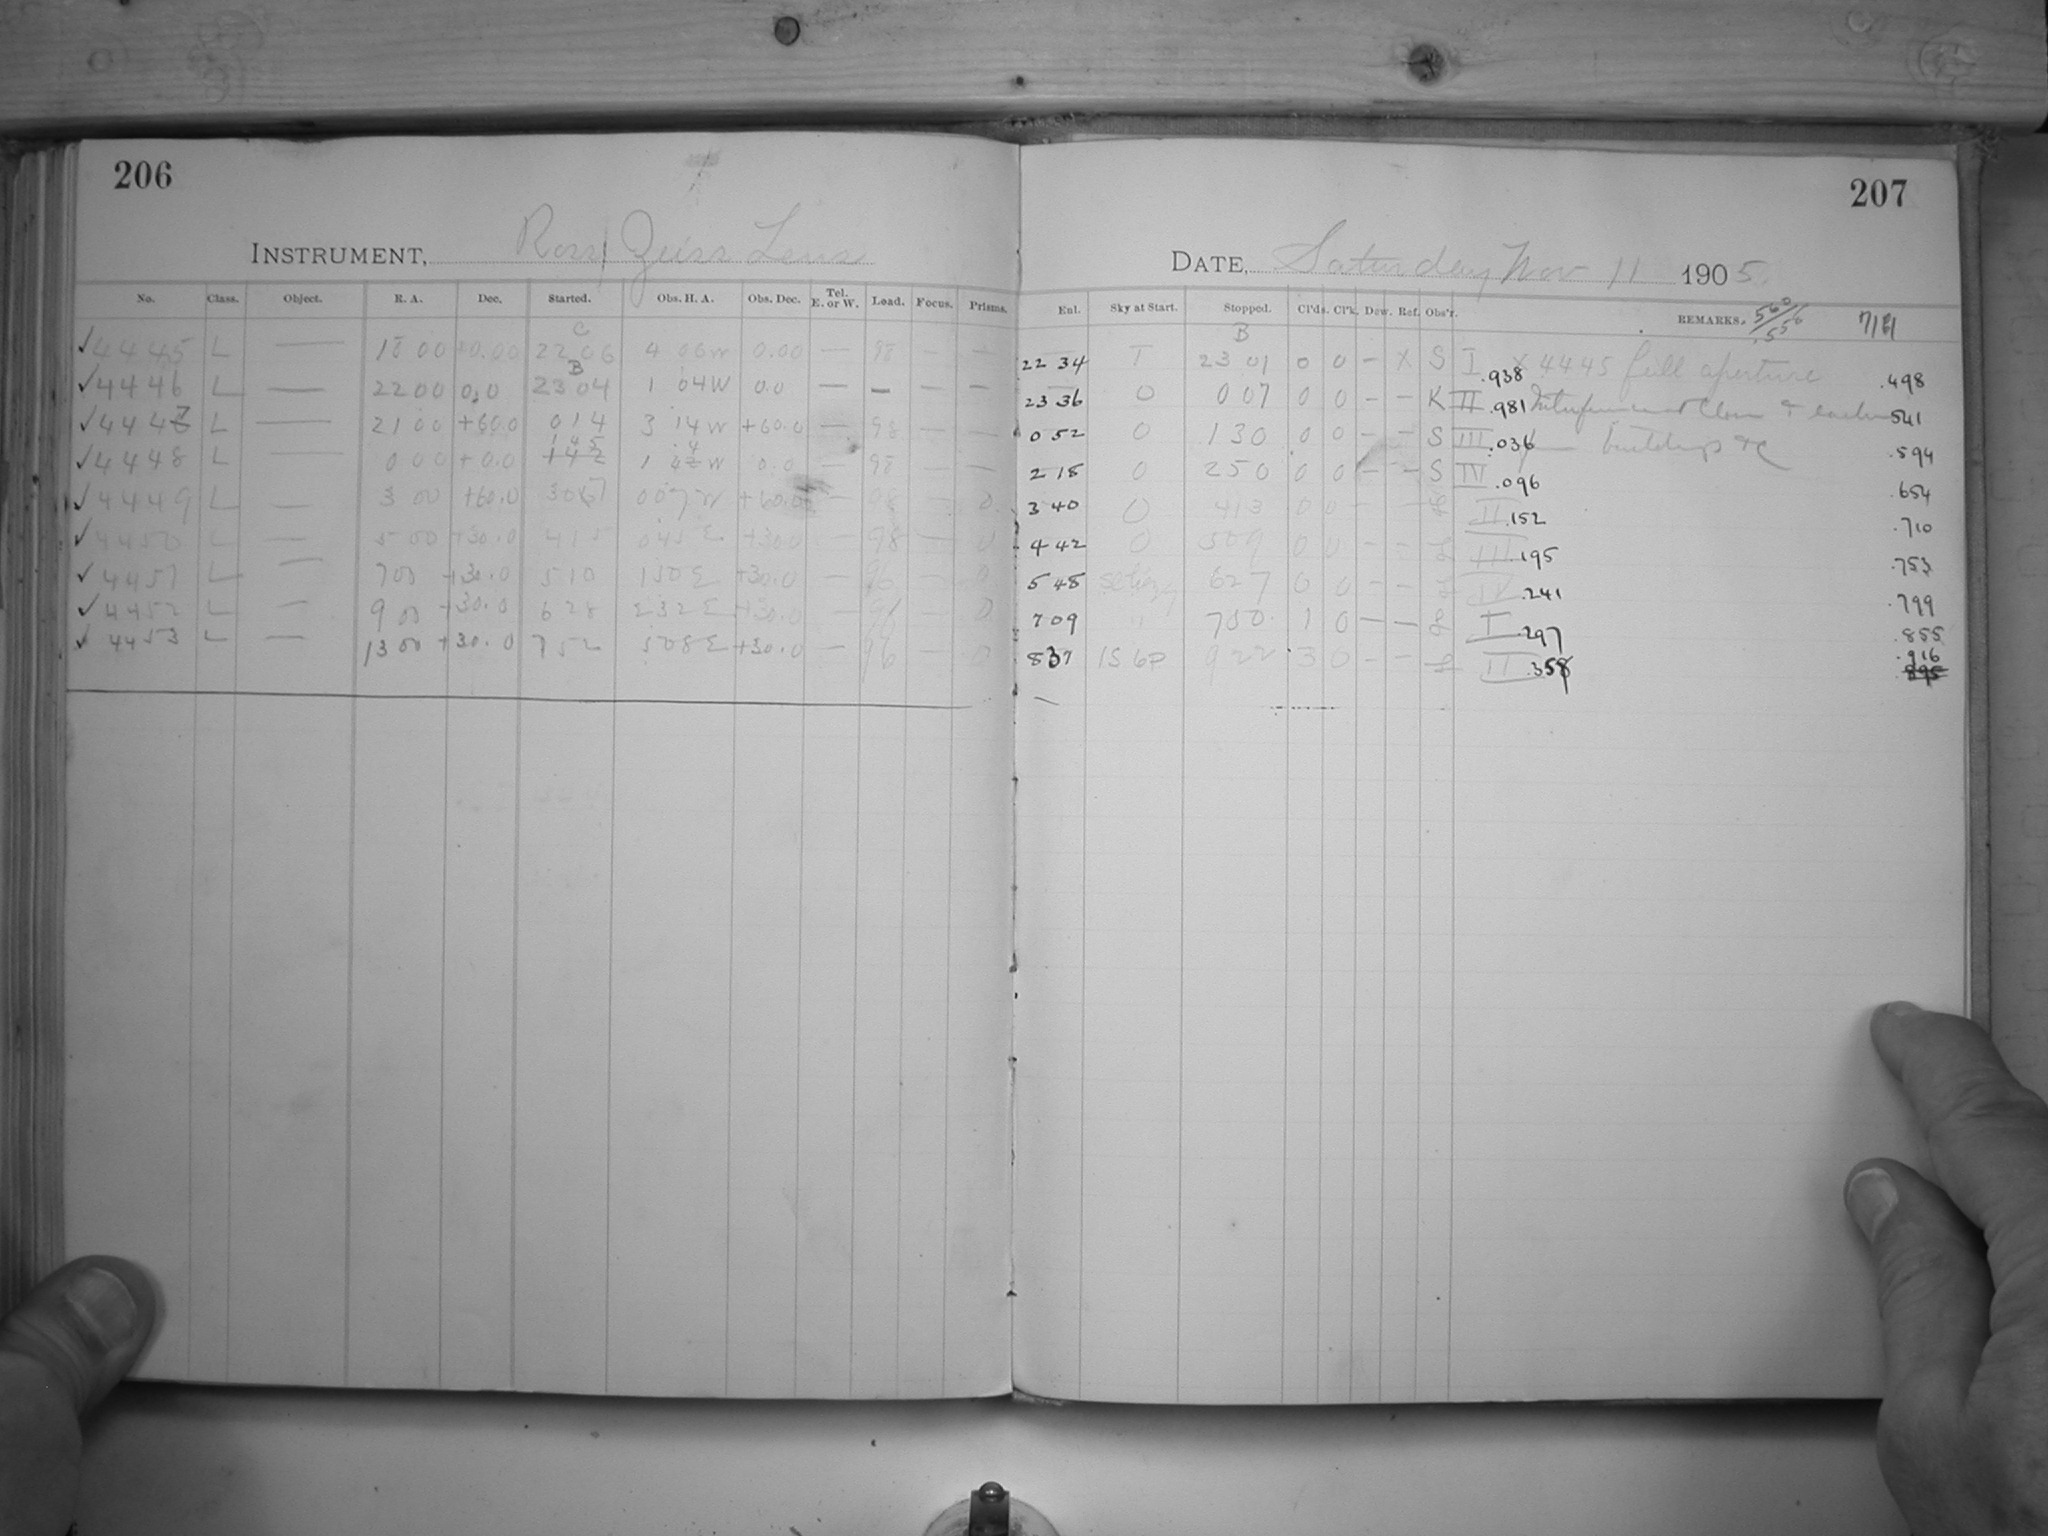 206
INSTRUMENT, Ross Zeiss Lens
No. Class. Object. R. A. Dec. Started. Obs. H. A. Obs. Dec. Tel. E. or W. Load. Focus. Prisms.
C
✓4445 L — 18 00 +0.00 22 06 4 06W 0.00 — 98 — —
B
✓4446 L — 22 00 0.0 23 04 1 04W 0.0 — — — —
✓4447 L — 21 00 +60.0 0 14 3 14W +60.0 — 98 — —
✓4448 L — 0 00 +0.0 145 1 44W 0.0 — 98 — —
✓4449 L — 3 00 +60.0 307 0 07W +60.0 — 98 — 0
✓4450 L — 5 00 +30.0 415 045E +30.0 — 98 — 0
✓4451 L — 7 00 +30.0 510 150E +30.0 — 96 — 0
✓4452 L — 9 00 +30.0 628 232E +30.0 — 96 — 0
✓4453 L — 13 00 +30.0 752 508E +30.0 — 96 — 0
207
DATE, Saturday Nov 11 1905
Enl. Sky at Start. Stopped. Cl'ds. Cl'k. Dew. Ref. Obs'r. REMARKS.
B
22 34 T 23 01 0 0 – X S I .938 X 4445 full aperture .498
23 36 0 0 07 0 0 – – K II .981 .541
0 52 0 1 30 0 0 – – S III .036 buildings &c .594
2 18 0 2 50 0 0 – – S IV .096 .654
3 40 0 413 0 0 – – L II .152 .710
4 42 0 509 0 0 – – L III .195 .753
5 48 627 0 0 – – L IV .241 .799
7 09 " 750 1 0 – – L I .297 .855
8 37 IS 6P 922 3 0 – – L II .358 .916